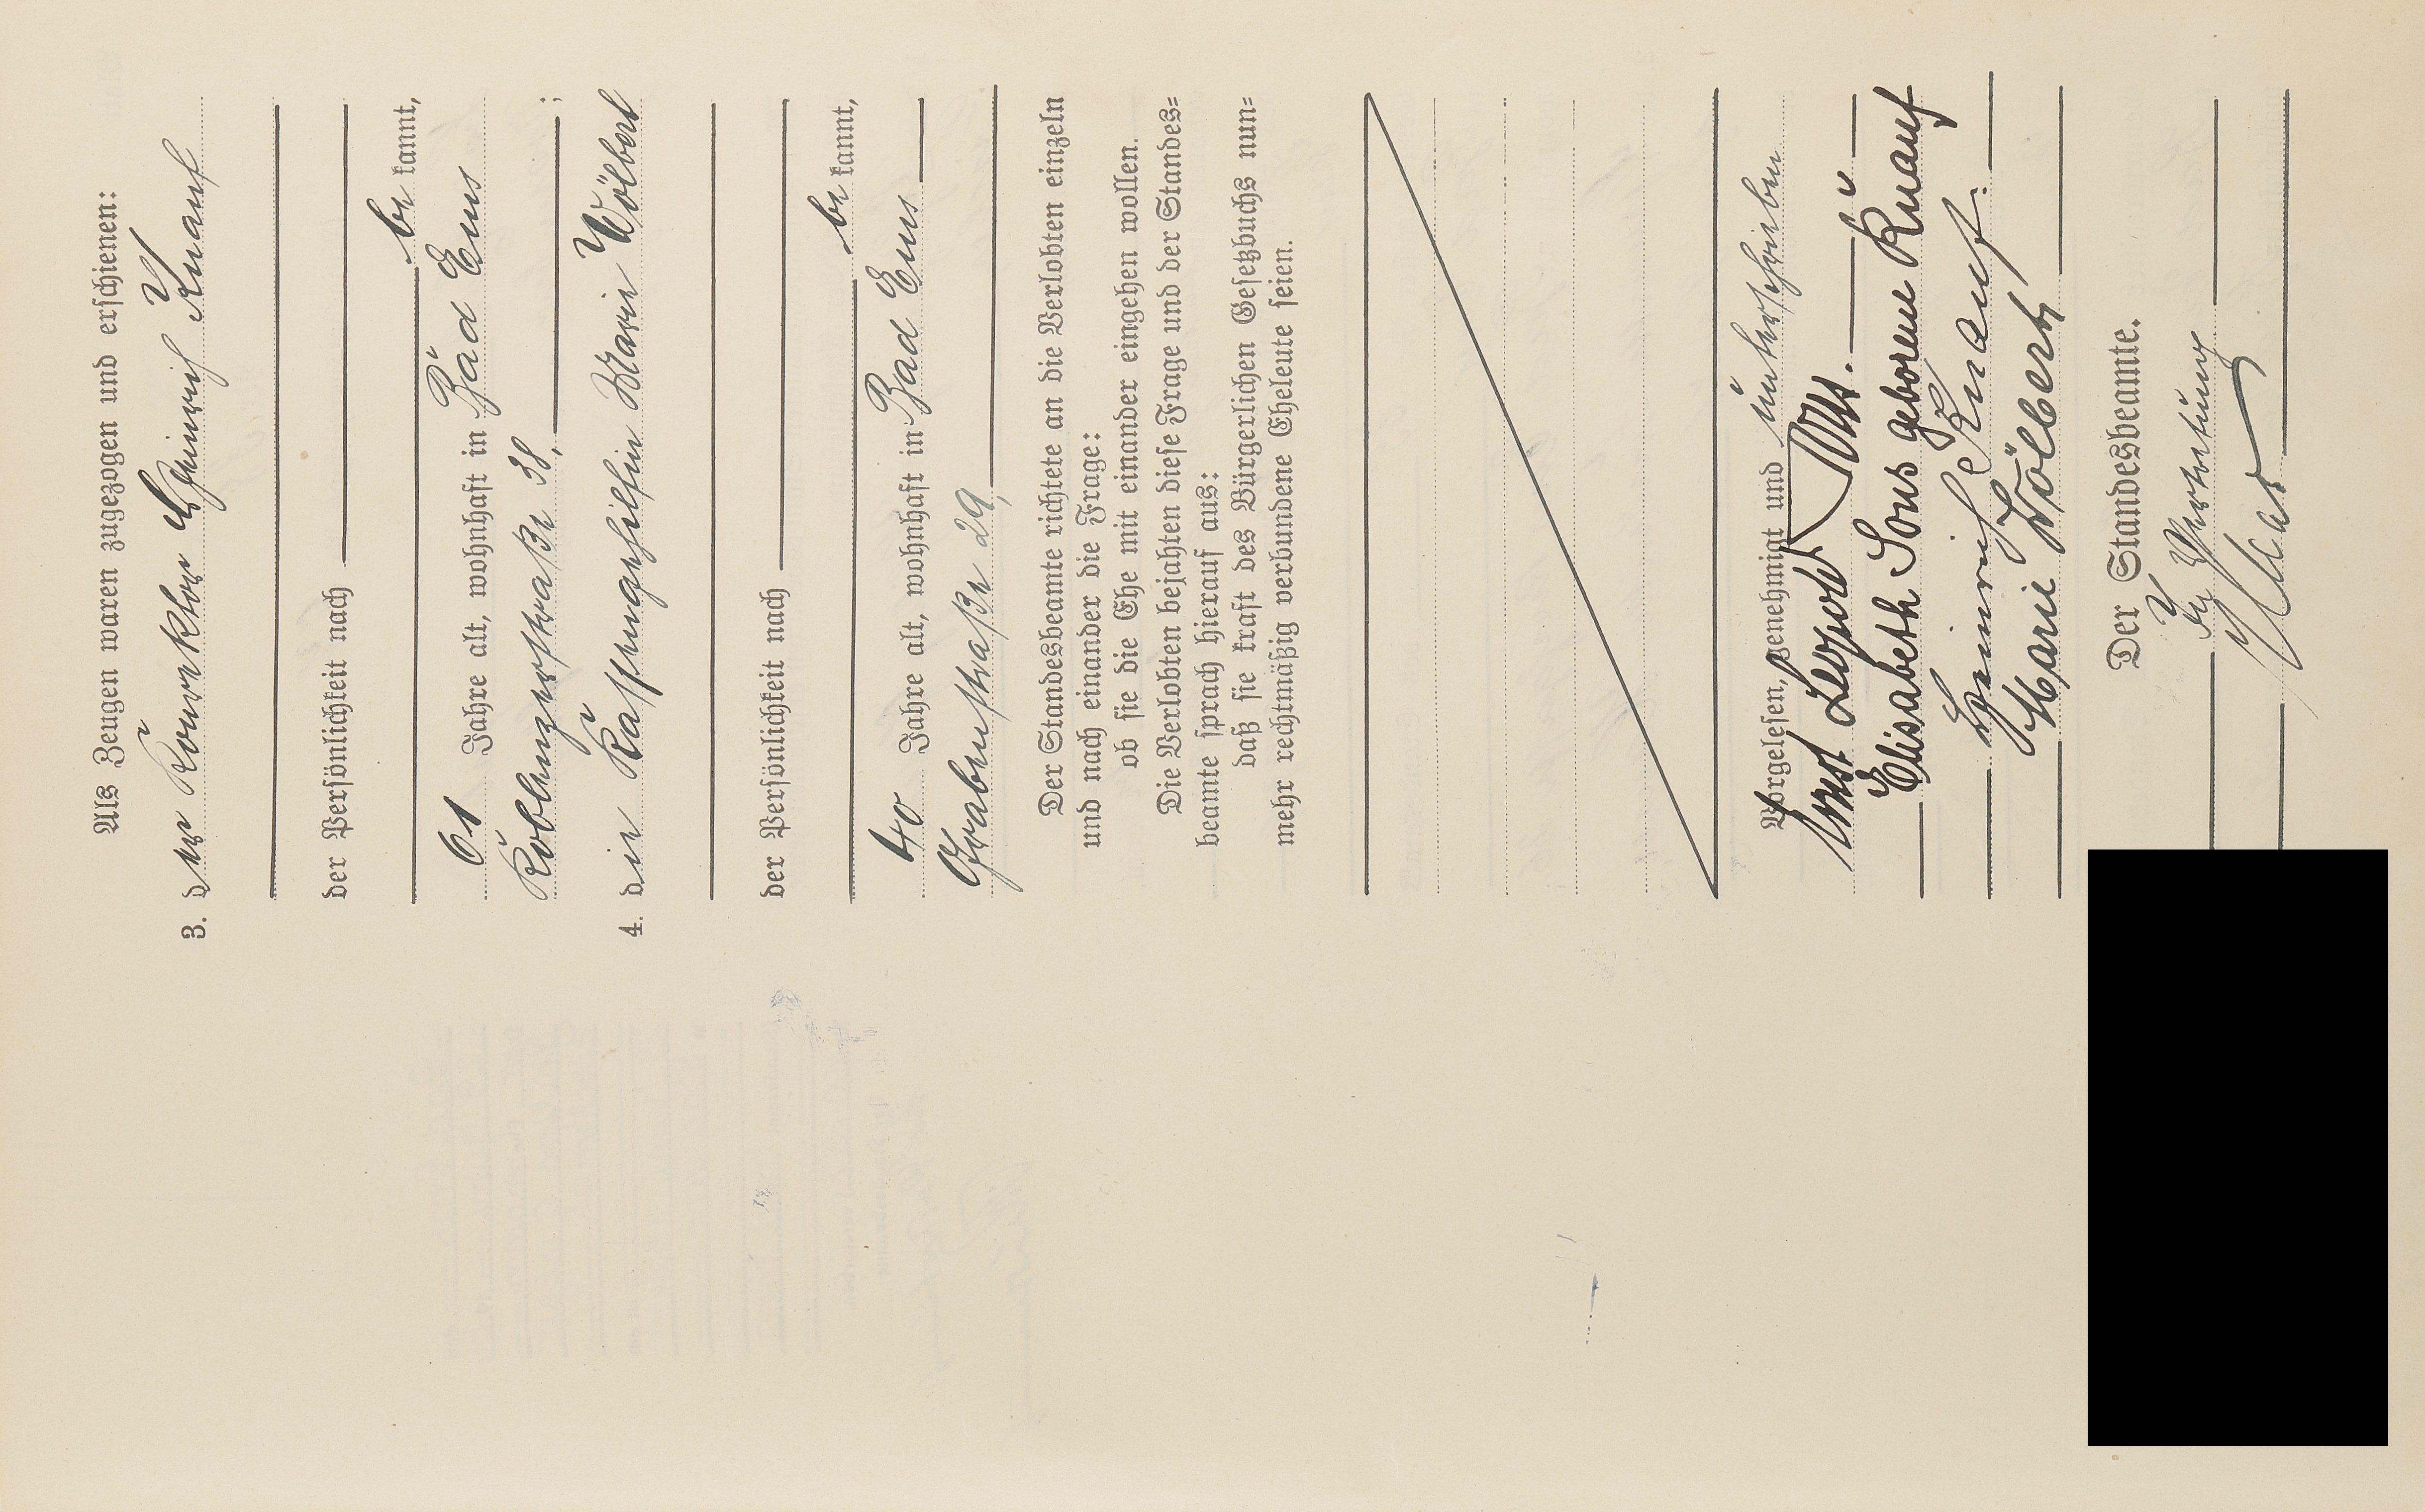 Als Zeugen waren zugezogen und erschienen:
3. der Konrektor Heinrich Knauf
der Persönlichkeit nach
be kannt,
61 Jahre alt, wohnhaft in Bad Ems
Koblenzerstraße 38, ;
4. die Kassengehilfin Marie Wölbert
der Persönlichkeit nach
be kannt,
40 Jahre alt, wohnhaft in Bad Ems
Grabenstraße 29,
Der Standesbeamte richtete an die Verlobten einzeln
und nach einander die Frage:
ob sie die Ehe mit einander eingehen wollen.
Die Verlobten bejahten diese Frage und der Standes=
beamte sprach hierauf aus:
daß sie kraft des Bürgerlichen Gesetzbuchs nun=
mehr rechtmäßig verbundene Eheleute seien.
Vorgelesen, genehmigt und unterschrieben
Ernst Leopold
Elisabeth Sous geborene Knauf
Heinrich Knauf.
Marie Wölbert
Der Standesbeamte.
In Vertretung